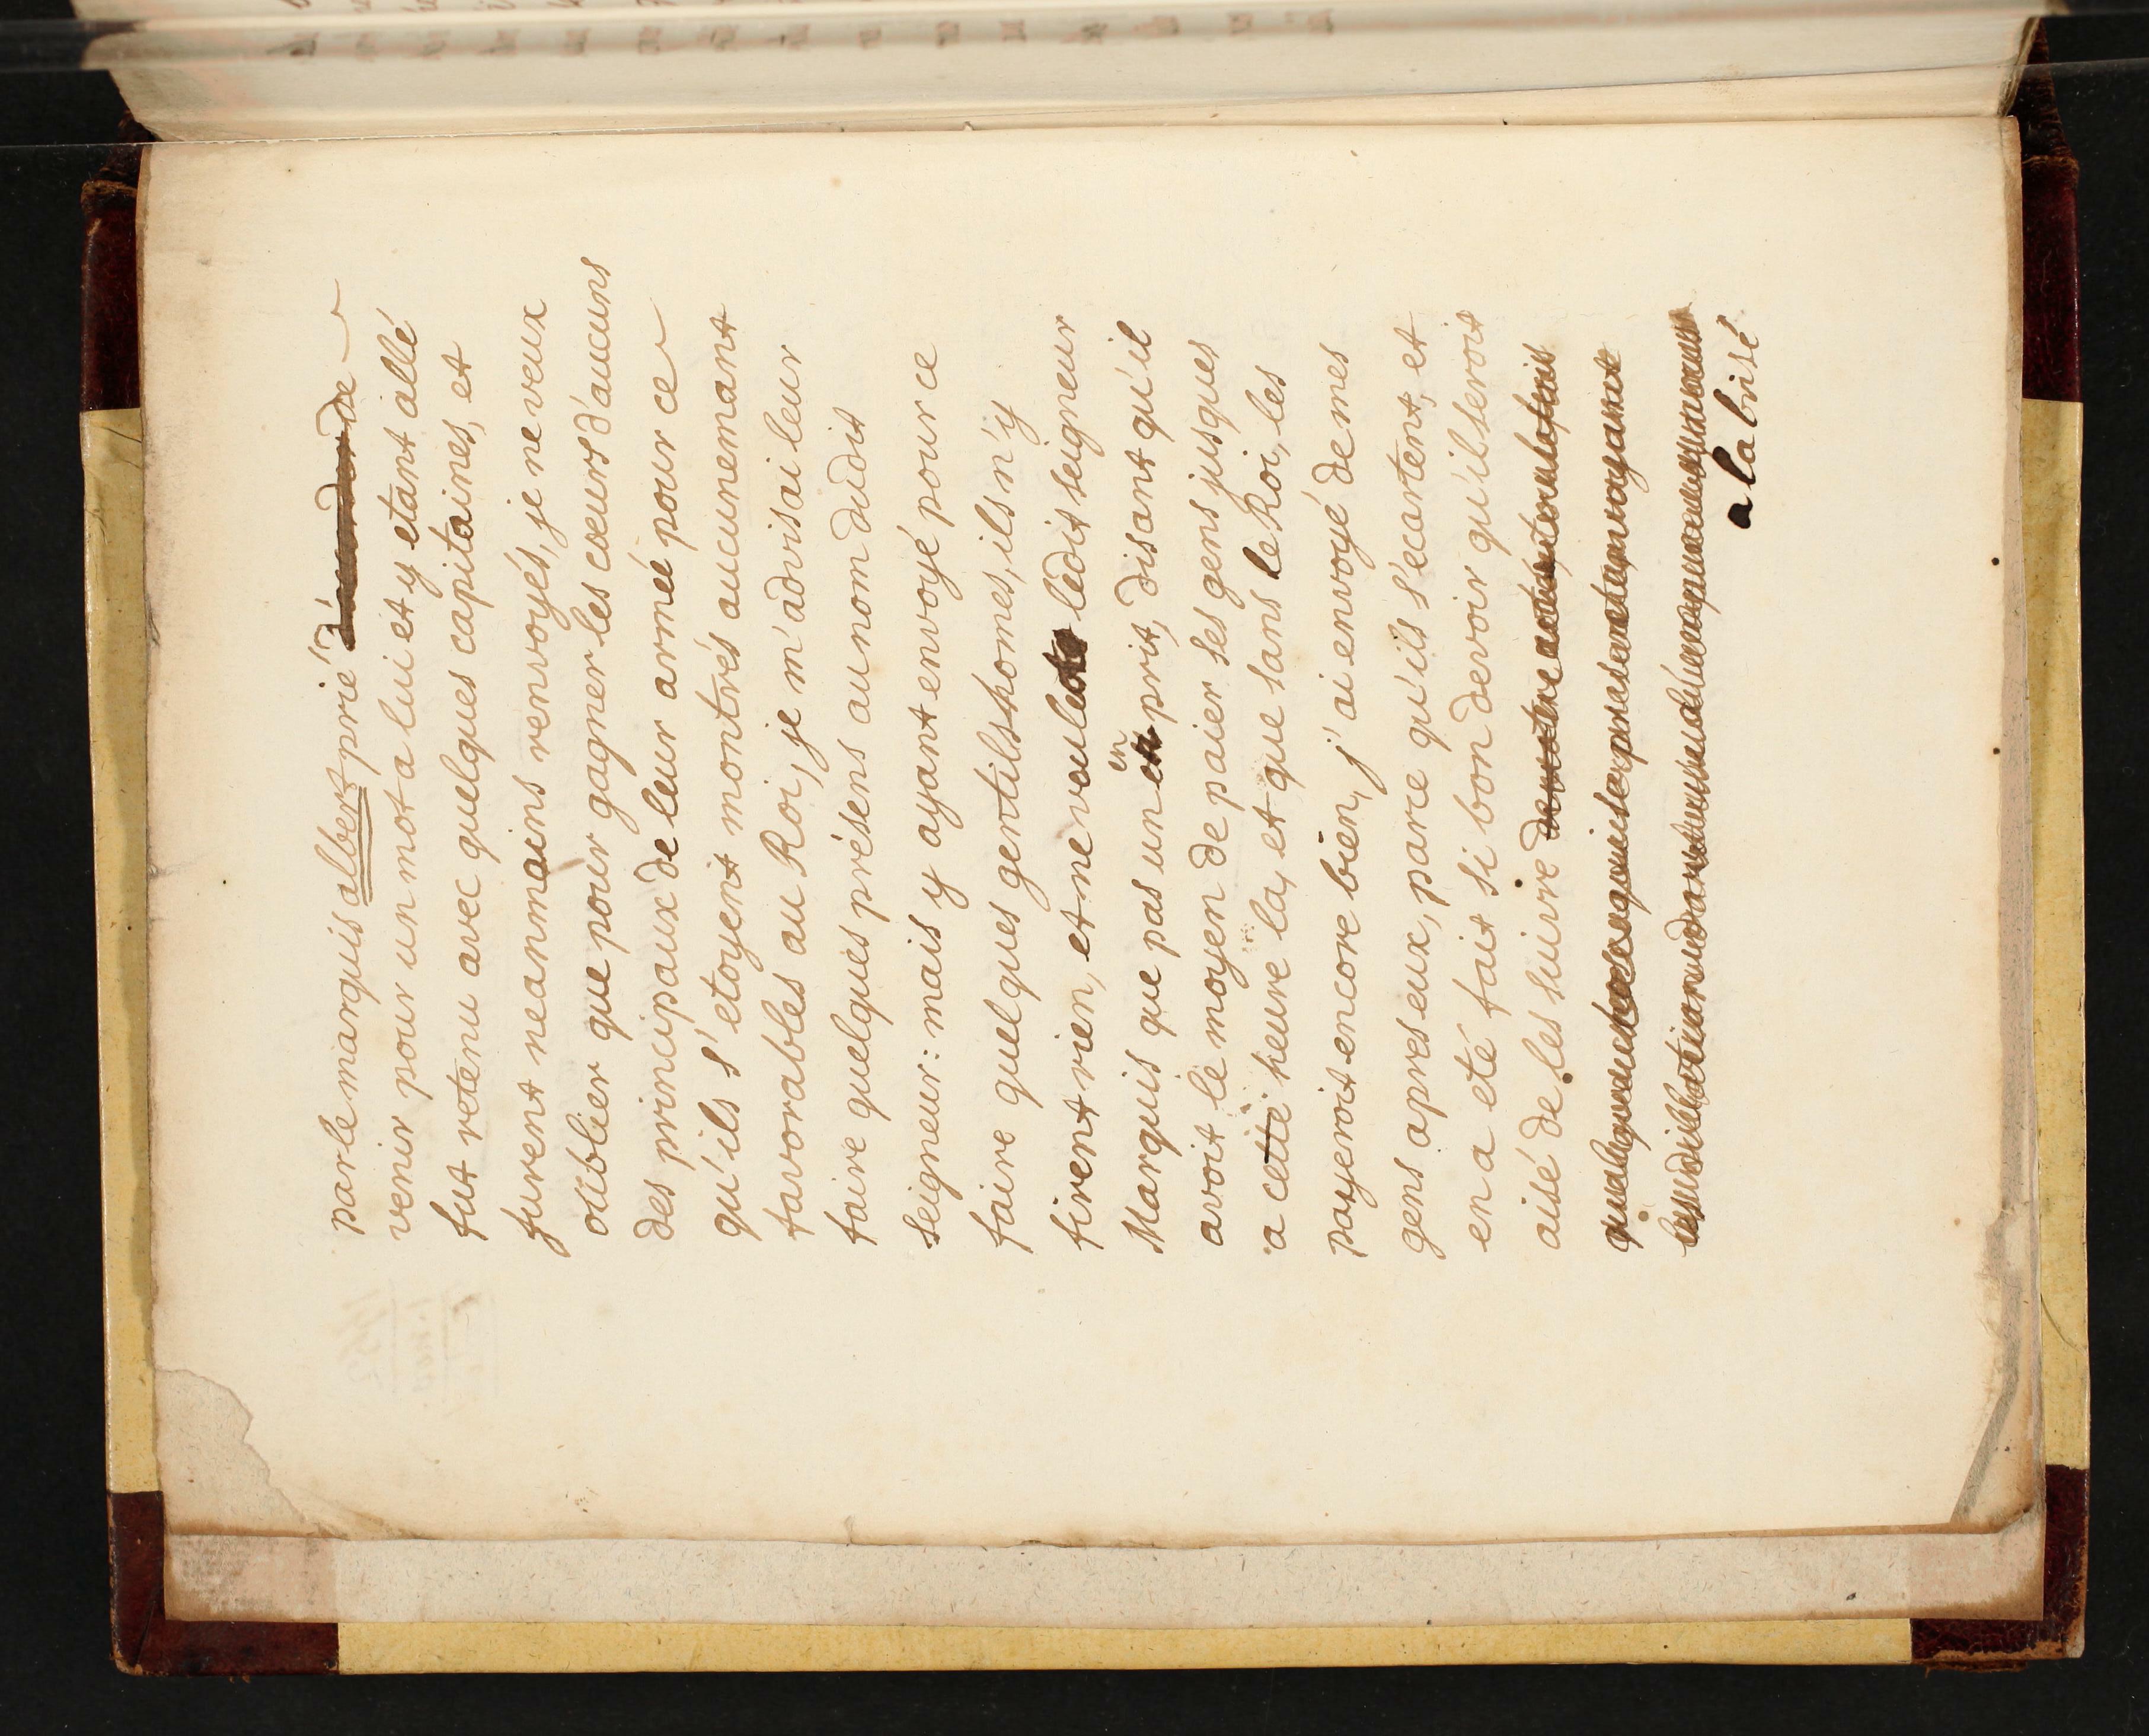 par le marquis albert prié de
venir pour un mot a lui et y etant allé
fut retenu avec quelques capitaines, et
furent neanmoins renvoyés, je ne veux
oublier que pour gagner les cœurs d'aucuns
des principaux de leur armée pour ce
qu'ils s'etoyent montrés aucunemant
favorables au Roi, je m'advisai leur
faire quelques présens au nom dudit
seigneur: mais y ayant envoyé pour ce
faire quelques gentilshomes, ils n'y
firent rien, et ne voulut ledit seigneur
Marquis que pas un en prit, disant qu'il
avoit le moyen de paier ses gens jusques
a cette heure la, et que sans le Roi, les
payeroit encore bien, j'ai envoyé de mes
gens apres eux, parce qu'ils s'ecartent, et
en a eté fait si bon devoir qu'il seroit
aisé de les suivre
a la brisé